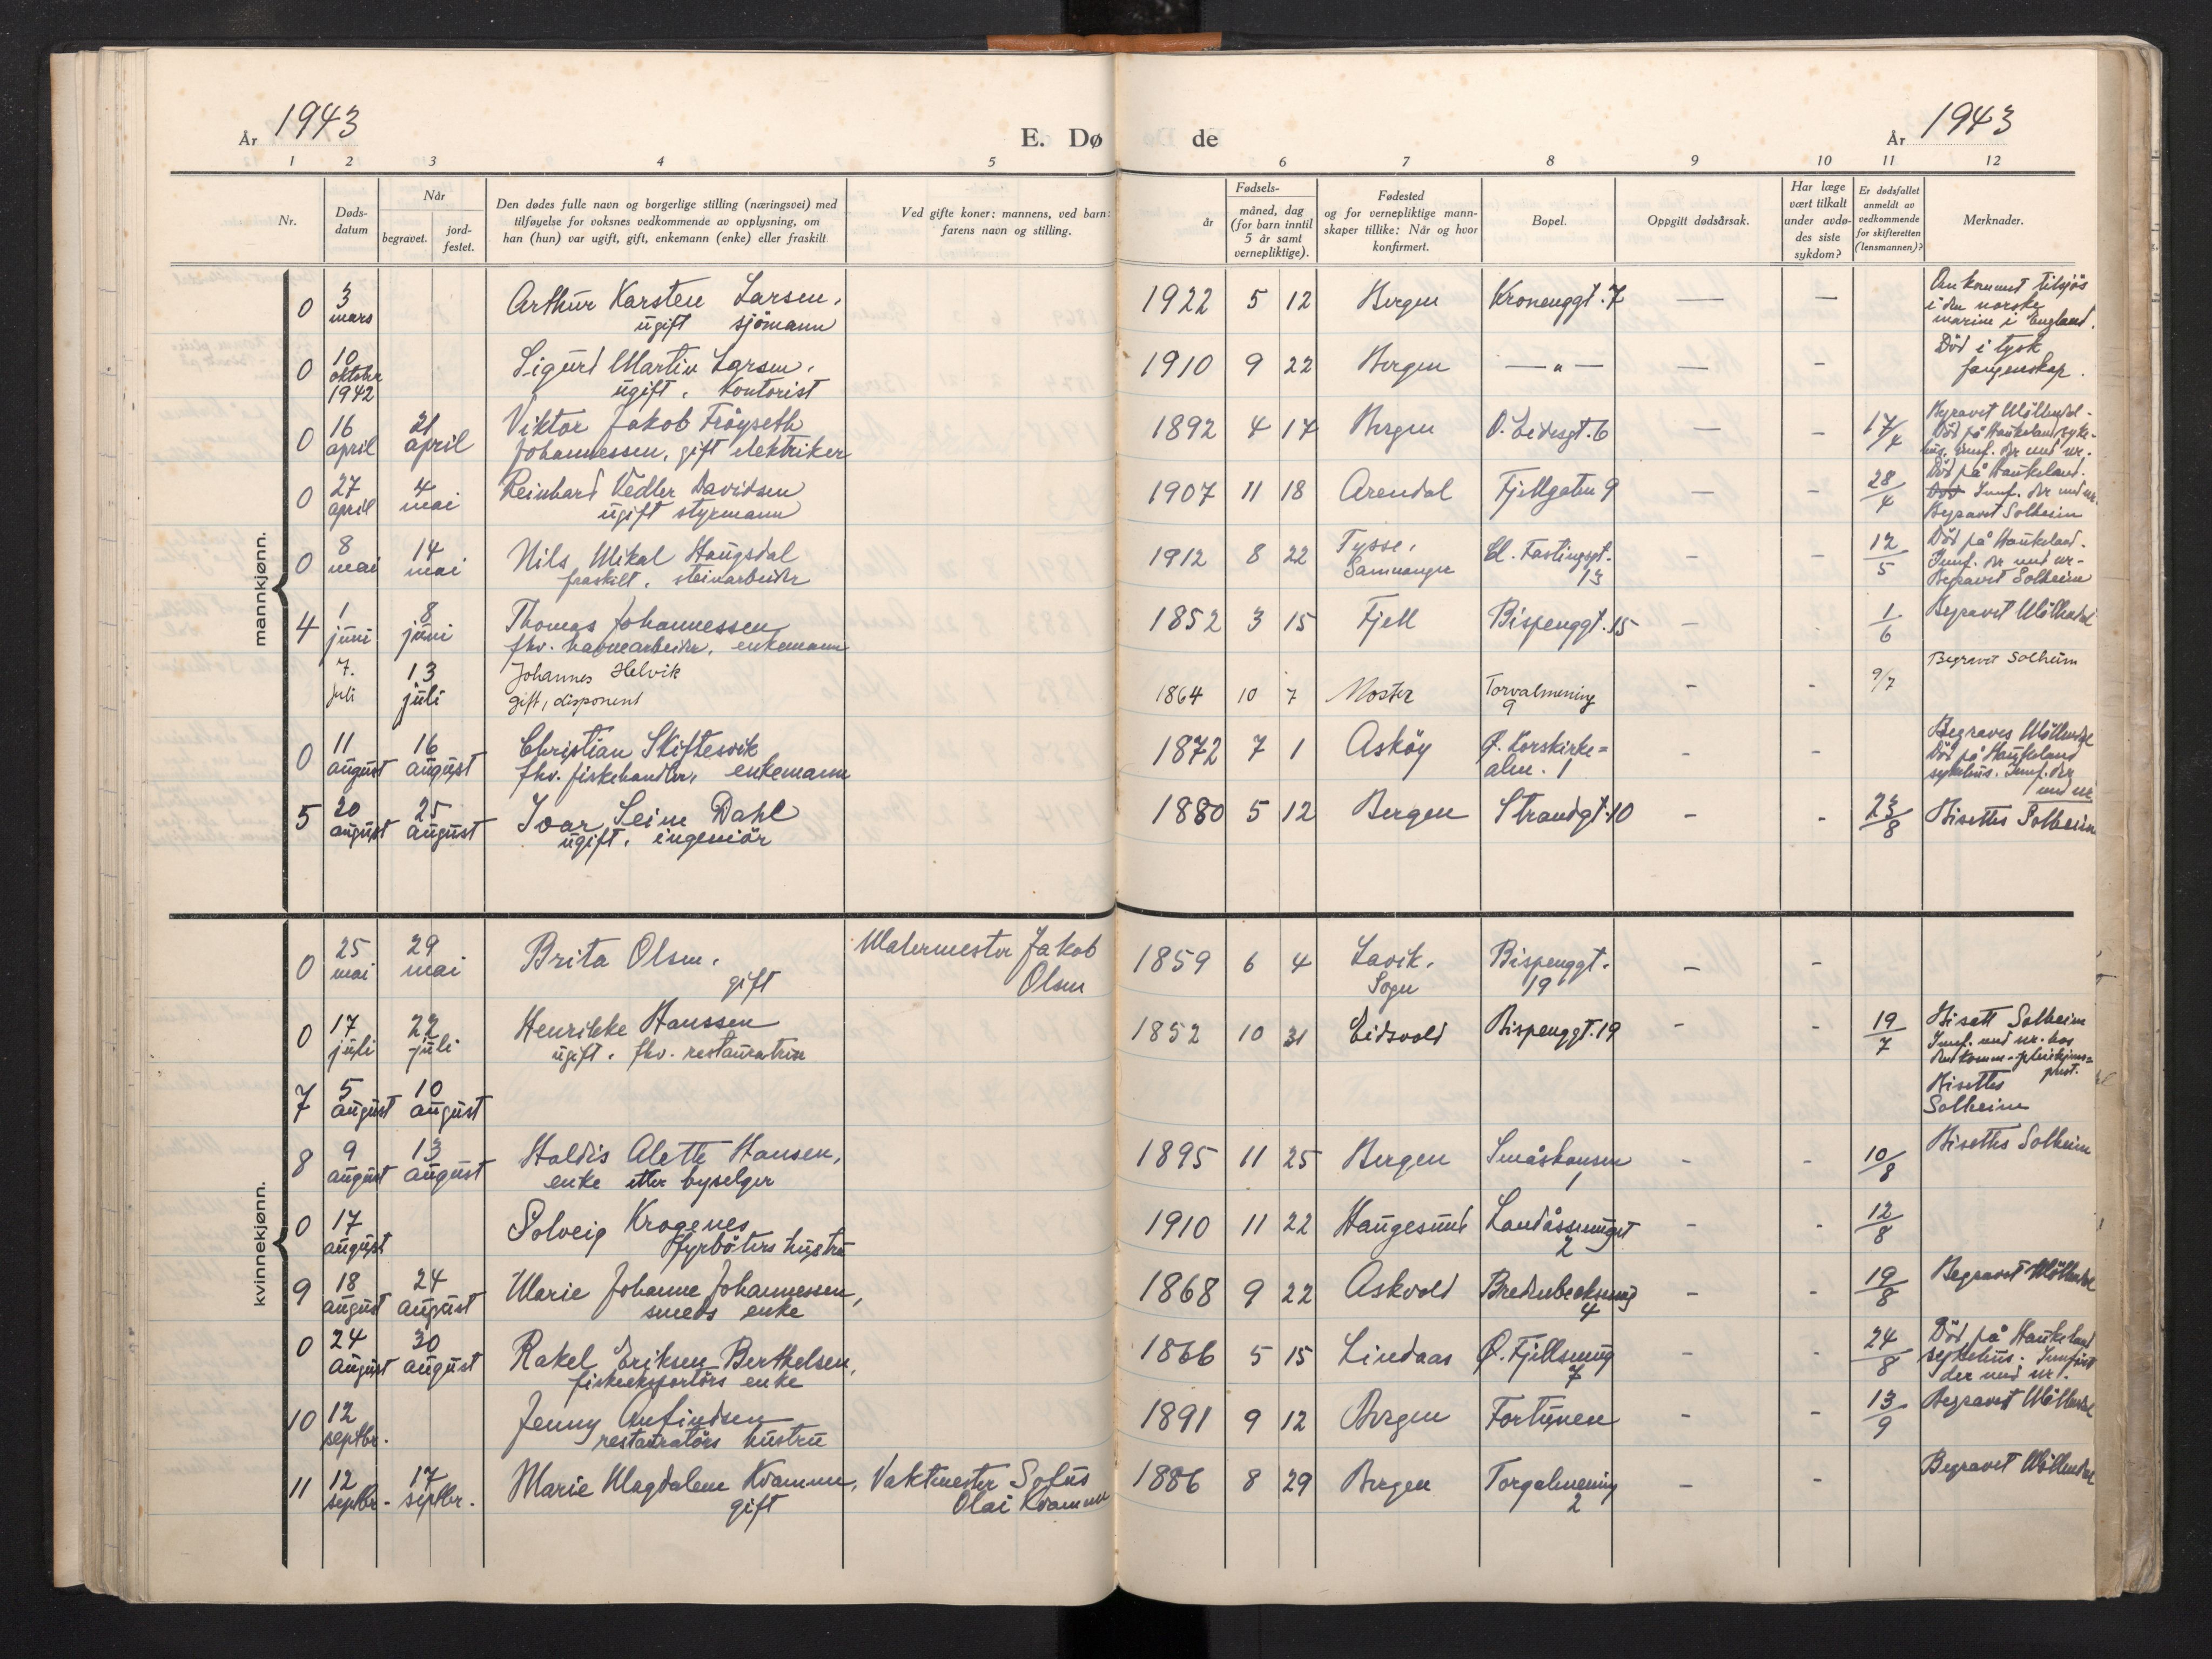 År 1943
E. Dø de
År 1943
1 2 3 4 5 6 7 8 9 10 11 12
Nr.
Døds-
datum
Når
begravet.
jord-
festet.
Den dødes fulle navn og borgerlige stilling (næringsvei) med
tilføyelse for voksnes vedkommende av opplysning, om
han (hun) var ugift, gift, enkemann (enke) eller fraskilt
Ved gifte koner: mannens, ved barn:
farens navn og stilling.
Fødsels-
år
måned, dag
(for barn inntil
5 år samt
vernepliktige).
Fødested
og for vernepliktige mann-
skaper tillike: Når og hvor
konfirmert.
Bopel.
Oppgitt dødsårsak.
Har læge
vært tilkalt
under avdø-
des siste
sykdom?
Er dødsfallet
anmeldt av
vedkommende
for skifteretten
(lensmannen)?
Merknader.
mannkjønn.
0 3 mars Arthur Karsten Larsen, 1922 5 12 Bergen Kronenggt. 7 — — Omkommet tilsjøs
ugift sjömann i den norske
marine i England.
0 10 oktober 1942 Sigurd Martin Larsen, 1910 9 22 Bergen — " — — - Död i tysk
ugift, Kontorist fangenskap.
0 16 april 21 april Viktor Jakob Fröyseth 1892 4 17 Bergen Ö. Eidesgt. 6 — - 17/4 Begravet Möllendal.
Johannessen, gift elektriker Död på Haukeland syke-
hus. Innf. der med nr.
0 27 april 4 mai Reinhard Vedler Davidsen 1907 11 18 Arendal Fjellgaten 9 — - 28/4 Död på Haukeland.
ugift styrmann Innf. der med nr.
Begravet Solheim
0 8 mai 14 mai Nils Mikal Haugsdal 1912 8 22 Tysse, Cl. Fastingsgt. - - 12/5 Död på Haukeland.
fraskilt, steinarbeider Samnanger 13 Innf. der med nr.
Begravet Solheim
4 1 juni 8 juni Thomas Johannessen 1852 3 15 Fjell Bispenggt. 15 - - 1/6 Begravet Möllendal
fhv. havnearbeider, enkemann
7. juli 13 juli Johannes Helvik 1864 10 7 Moster Torvalmening - - 9/7 Begravet Solheim
gift, disponent 9
0 11 august 16 august Christian Skiftesvik 1872 7 1 Asköy Ö. Korskirke= - - Begraves Möllendal
fhv. fiskehandler, enkemann alm. 1 Död på Haukeland
sykehus. Innf. der
med nr
5 20 august 25 august Ivar Seim Dahl 1880 5 12 Bergen Strandgt. 10 - - 23/8 Bisettes Solheim
ugift, ingeniör
kvinnekjønn.
0 25 mai 29 mai Brita Olsen, Malermester Jakob 1859 6 4 Lavik, Bispenggt. - -
gift Olsen Sogn 19
0 17 juli 22 juli Henrikke Hanssen 1852 10 31 Eidsvold Bispenggt. 19 - - 19/7 Bisett Solheim
ugift, fhv. restauratrise Innf. med nr. hos
den komm. pleiehjems=
prest.
7 5 august 10 august Bisettes
Solheim
8 9 august 13 august Haldis Alette Hansen, 1895 11 25 Bergen Småskansen - - 10/8 Bisettes Solheim
enke etter byselger 1
0 17 august Solveig Krogenes 1910 11 22 Haugesund Landåssmuget - - 12/8
fyrböters hustru 2
9 18 august 24 august Marie Johanne Johannessen, 1868 9 22 Askvold Bredenbecksmug - - 19/8 Begravet Möllendal
smeds enke 4
0 24 august 30 august Rakel Eriksen Berthelsen, 1866 5 15 Lindaas Ö. Fjellsmug - - 24/8 Död på Haukeland
fiskeeksportörs enke 7 sykehus. Innført
der med nr.
10 12 septbr. Jenny Anfindsen 1891 9 12 Bergen Fortunen - - 13/9 Begravet Möllendal
restauratörs hustru
11 12 septbr. 17 septbr. Marie Magdalene Kvamme, Vaktmester Sofus 1886 8 29 Bergen Torgalmening - - Begravet Möllendal
gift Olai Kvamme 2